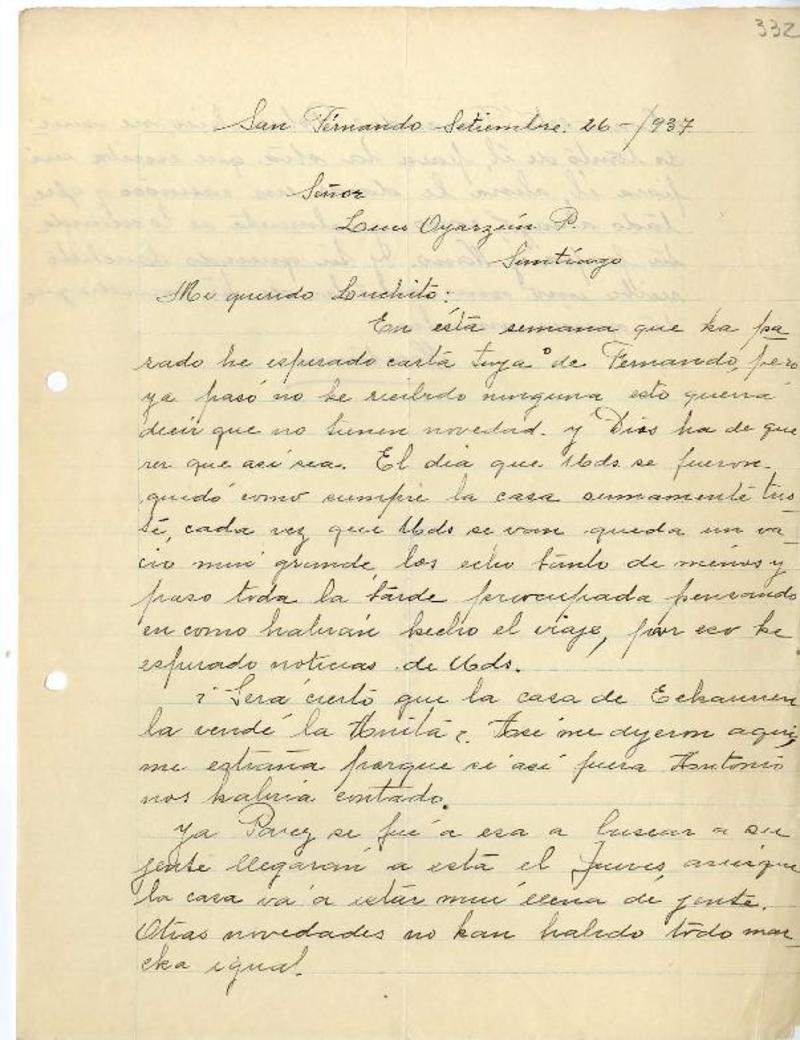 332
San Fernando Setiembre. 26-/937
Señor
Luis Oyarzún P.
Santiago
Mi querido Luchito:
En ésta semana que ha pa
sado he esperado carta tuya o de Fernando, pero
ya pasó no he recibido ninguna esto querrá
decir que no tienen novedad. y Dios ha de que
rer que así sea. El dia que Uds. se fueron.
quedó como siempre la casa sumamente tris-
te, cada vez que Uds se van queda un va-
cio mui grande, los echo tanto de menos y
paso toda la tarde preocupada pensando
en como habrán hecho el viaje, por eso he
esperado noticias de Uds.
¿Será cierto que la casa de Echaurren
la vende la Anita? Asi me dijeron aqui,
me extraña porque si asi fuera Antonio
nos habria contado.
Ya Parez se fué a esa a buscar a su
jente llegarán a ésta el Jueves asi que
la casa vá a estar mui llena de jente.
Otras novedades no han habido todo mar-
cha igual.